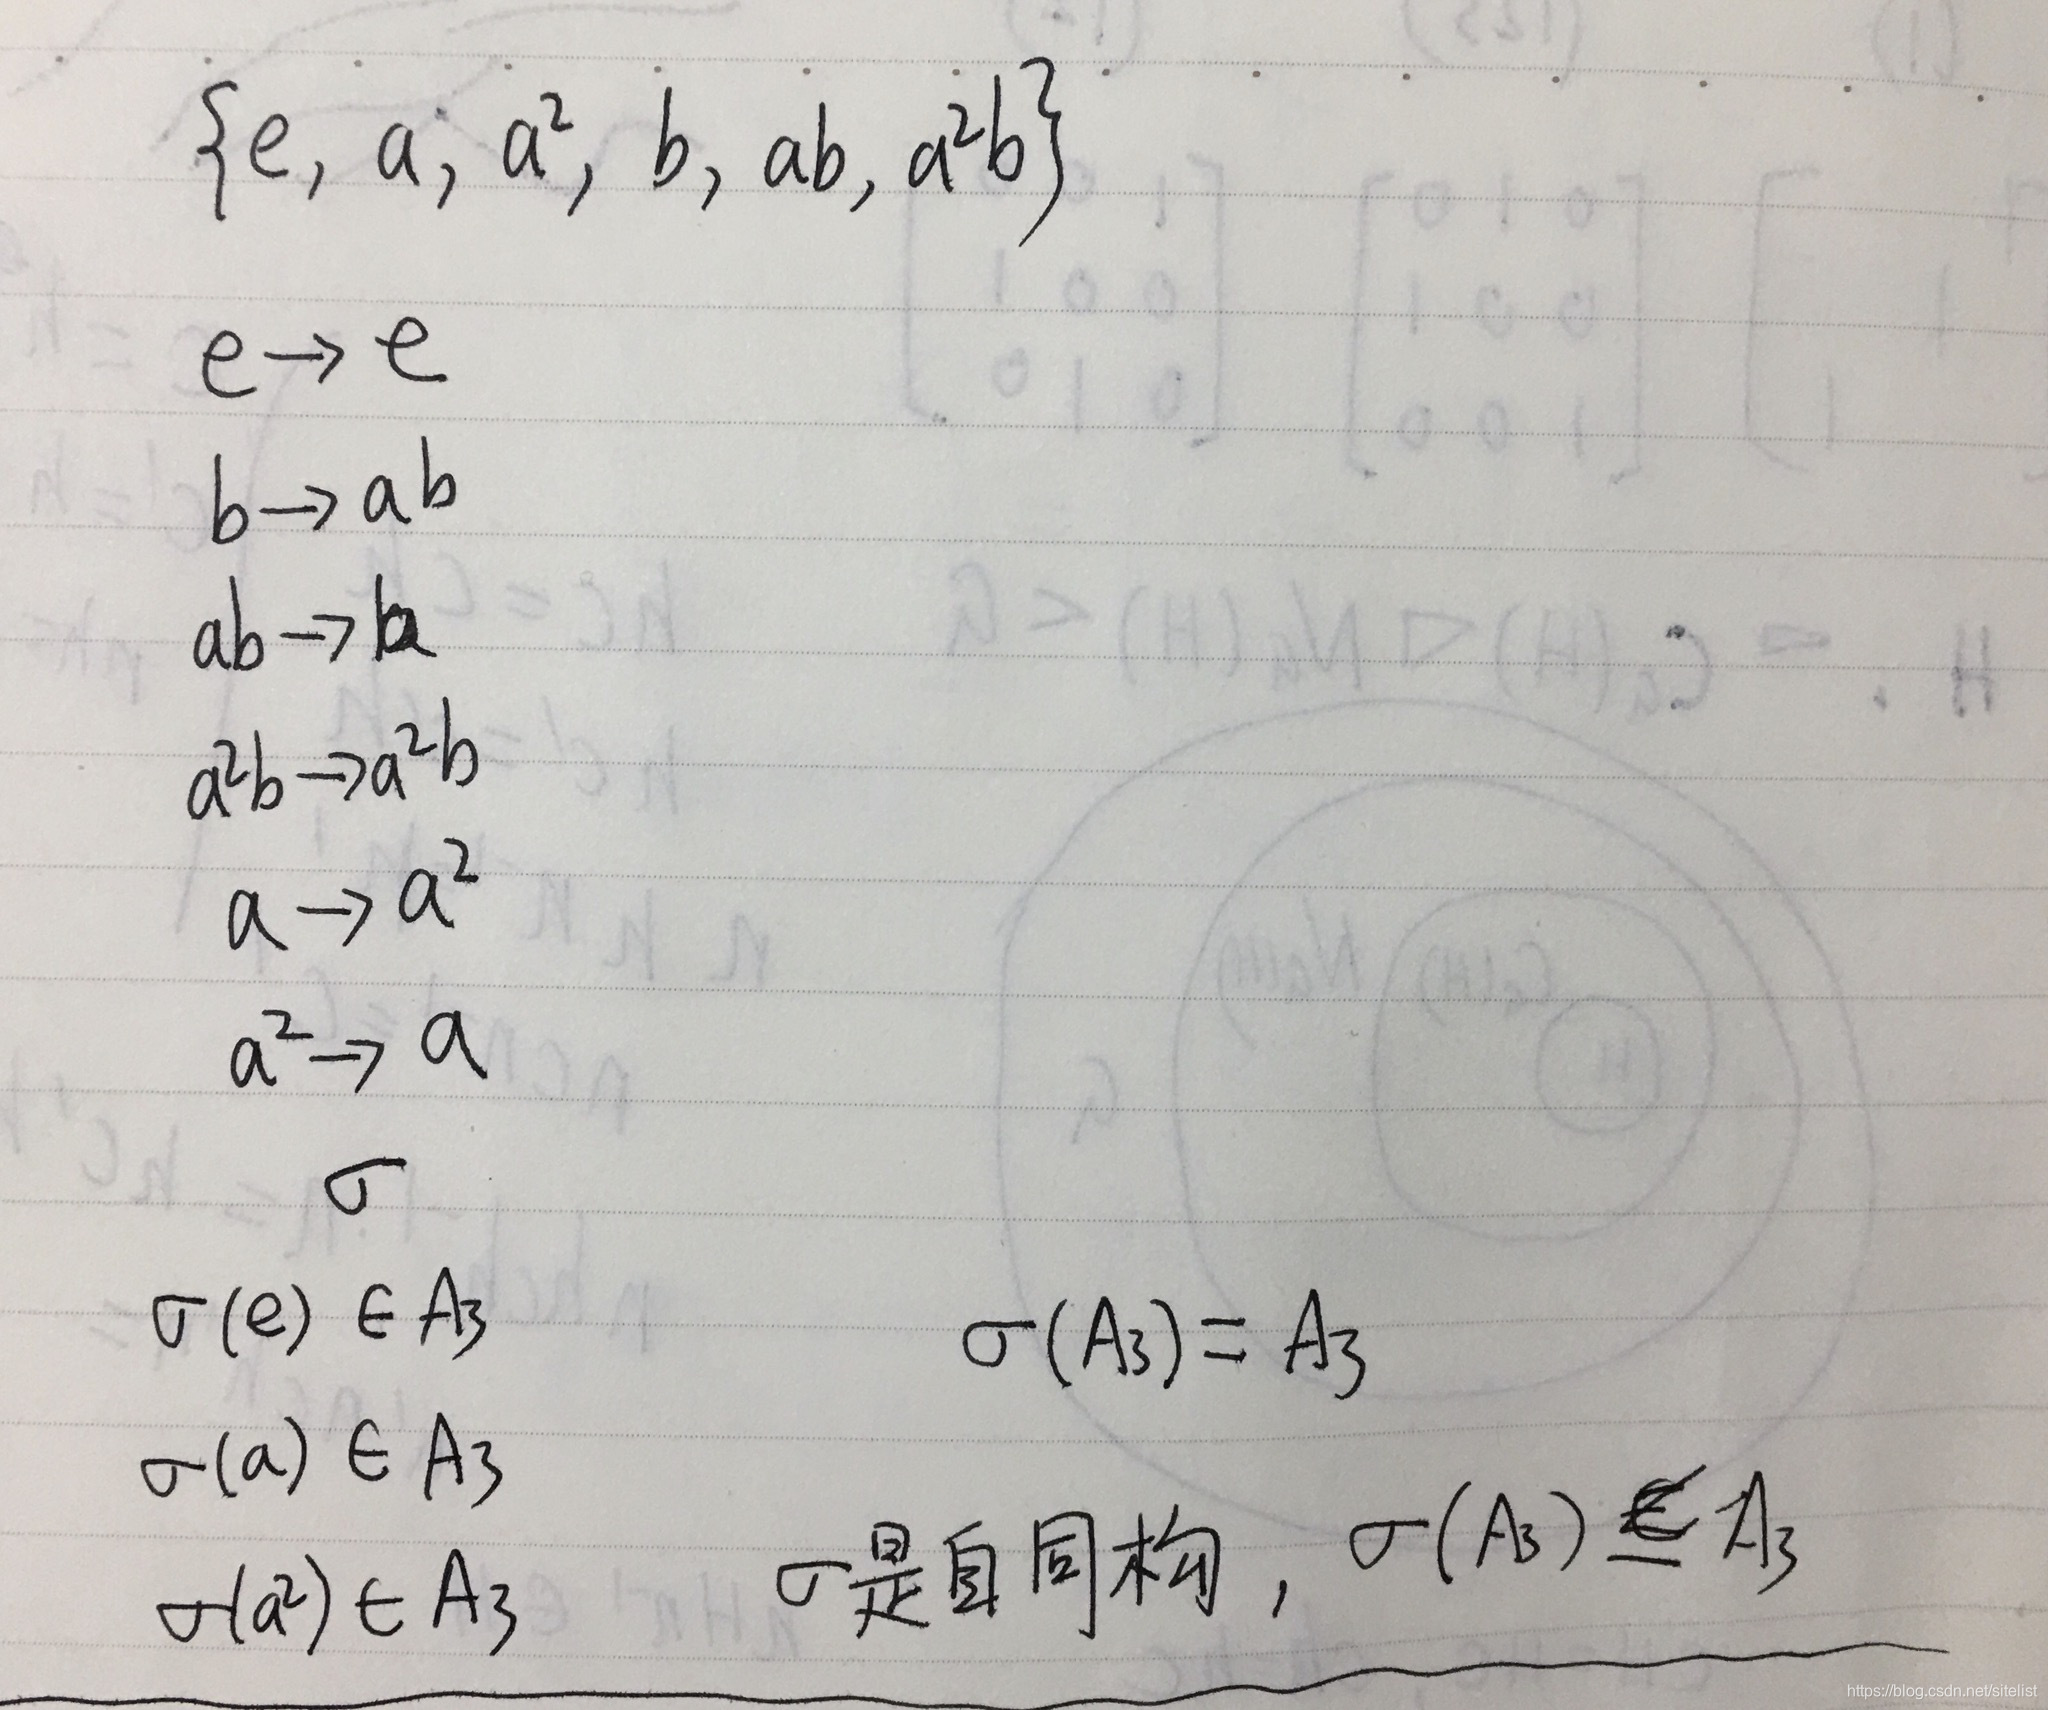 {e, a, a², b, ab, a²b}
e → e
b → ab
ab → b
a²b → a²b
a → a²
a² → a
σ
σ(e) ∈ A₃
σ(A₃) = A₃
σ(a) ∈ A₃
σ(a²) ∈ A₃
σ是自同构, σ(A₃) ⊆ A₃
https://blog.csdn.net/sitelist